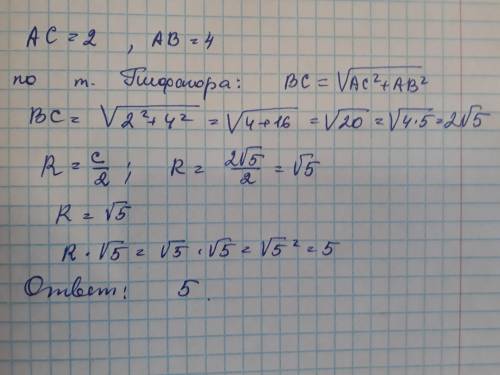 AC = 2 , AB = 4
по т. Пифагора: BC = √(AC² + AB²)
BC = √(2² + 4²) = √(4 + 16) = √20 = √(4·5) = 2√5
R = c/2 ; R = 2√5/2 = √5
R = √5
R · √5 = √5 · √5 = √5² = 5
Ответ: 5.